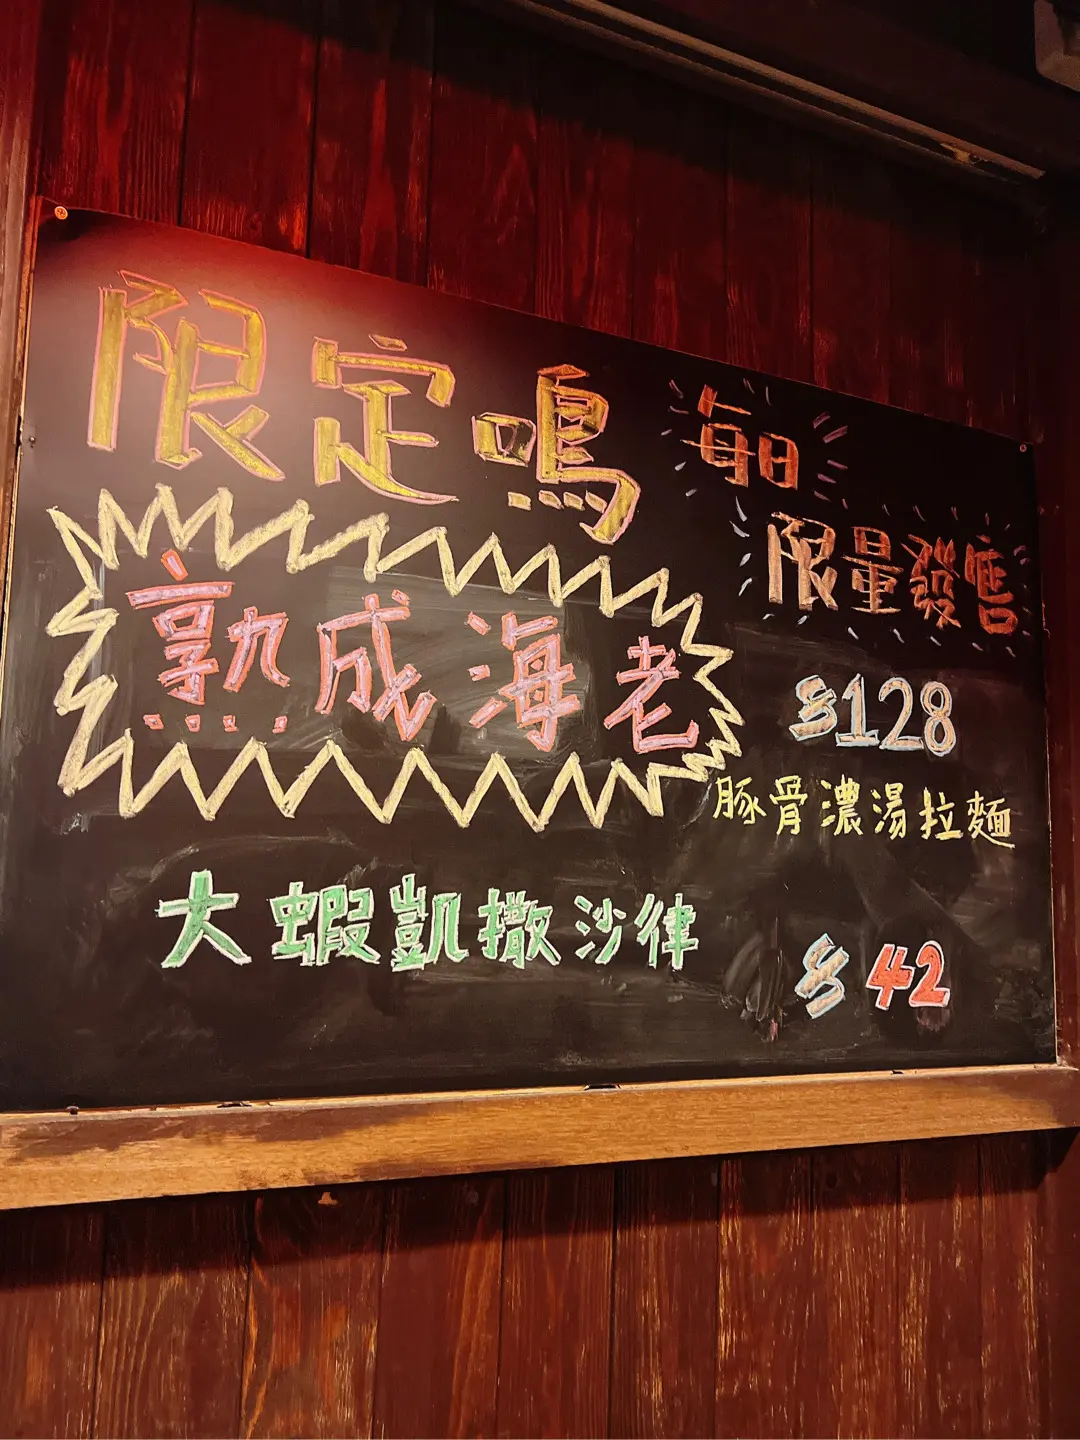 限定鳴
每日
限量發售
熟成海老
$128
豚骨濃湯拉麵
大蝦凱撒沙律
$42